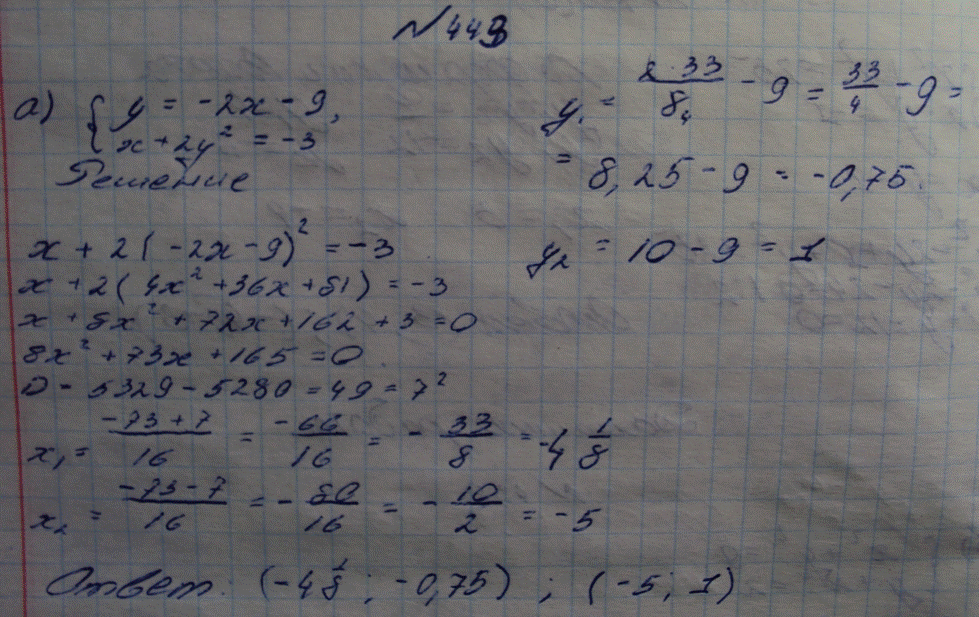 № 449
а) { y = -2x - 9,
x + 2y² = -3
Решение
x + 2(-2x - 9)² = -3
x + 2(4x² + 36x + 81) = -3
x + 8x² + 72x + 162 + 3 = 0
8x² + 73x + 165 = 0
D = 5329 - 5280 = 49 = 7²
x₁ = (-73 + 7)/16 = -66/16 = -33/8 = -4 1/8
x₂ = (-73 - 7)/16 = -80/16 = -10/2 = -5
y₁ = (2·33)/8₄ - 9 = 33/4 - 9 =
= 8,25 - 9 = -0,75.
y₂ = 10 - 9 = 1
Ответ: (-4 1/8; -0,75) ; (-5; 1)